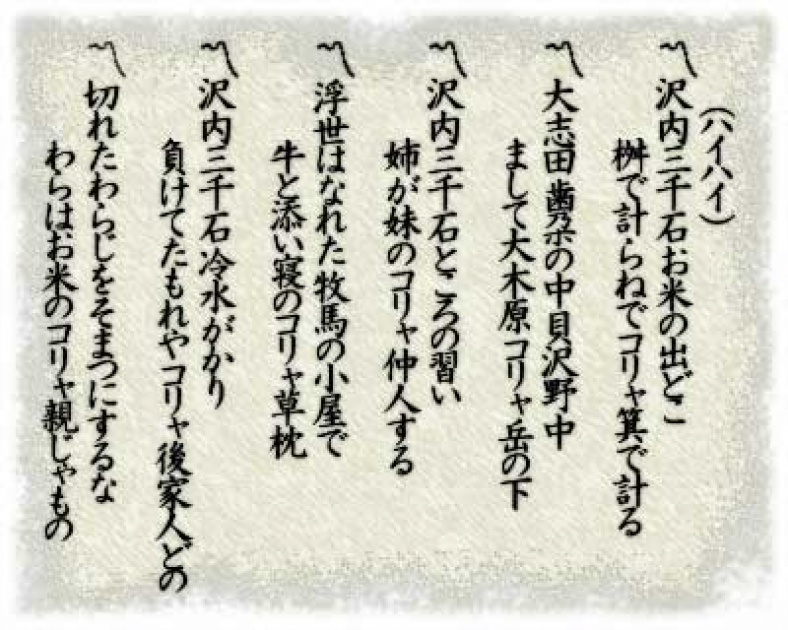 (ハイハイ)
〽沢内三千石お米の出どこ
桝で計らねでコリャ箕で計る
〽大志田歯朶の中貝沢野中
まして大木原コリャ岳の下
〽沢内三千石ところの習い
姉が妹のコリャ仲人する
〽浮世はなれた牧馬の小屋で
牛と添い寝のコリャ草枕
〽沢内三千石冷水がかり
負けてたもれやコリャ後家人どの
〽切れたわらじをそまつにするな
わらはお米のコリャ親じゃもの